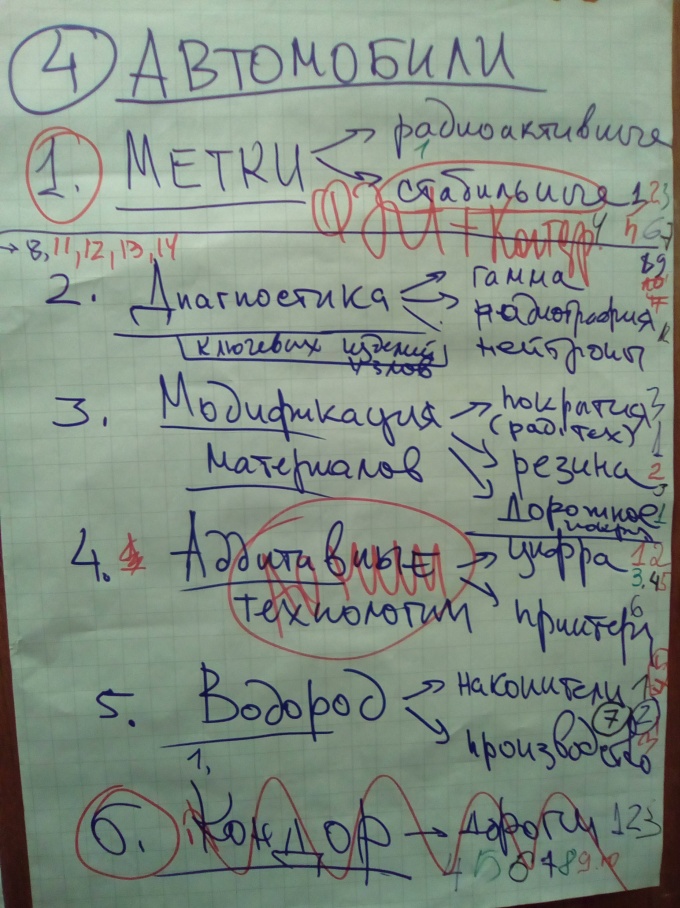 4 АВТОМОБИЛИ
1. МЕТКИ → радиоактивные
1
→ стабильные 1 2 3
1 + Контур 4 5 6 7
→ 8, 11, 12, 13, 14
8 9
2. Диагностика → гамма
→ радиография
ключевых изделий нейтроны
узлов
3. Модификация → покрытия 3
(рад. тех) 1
материалов → резина 2
→ Дорожное 1
покрыт
4. Аддитавные → цифра 1 2
3, 4 5
технологии → принтеры 6
5. Водород → накопители 1
7 2
→ производство
1,
6. Кондор → дороги 1 2 3
4 5 6 7 8 9 10